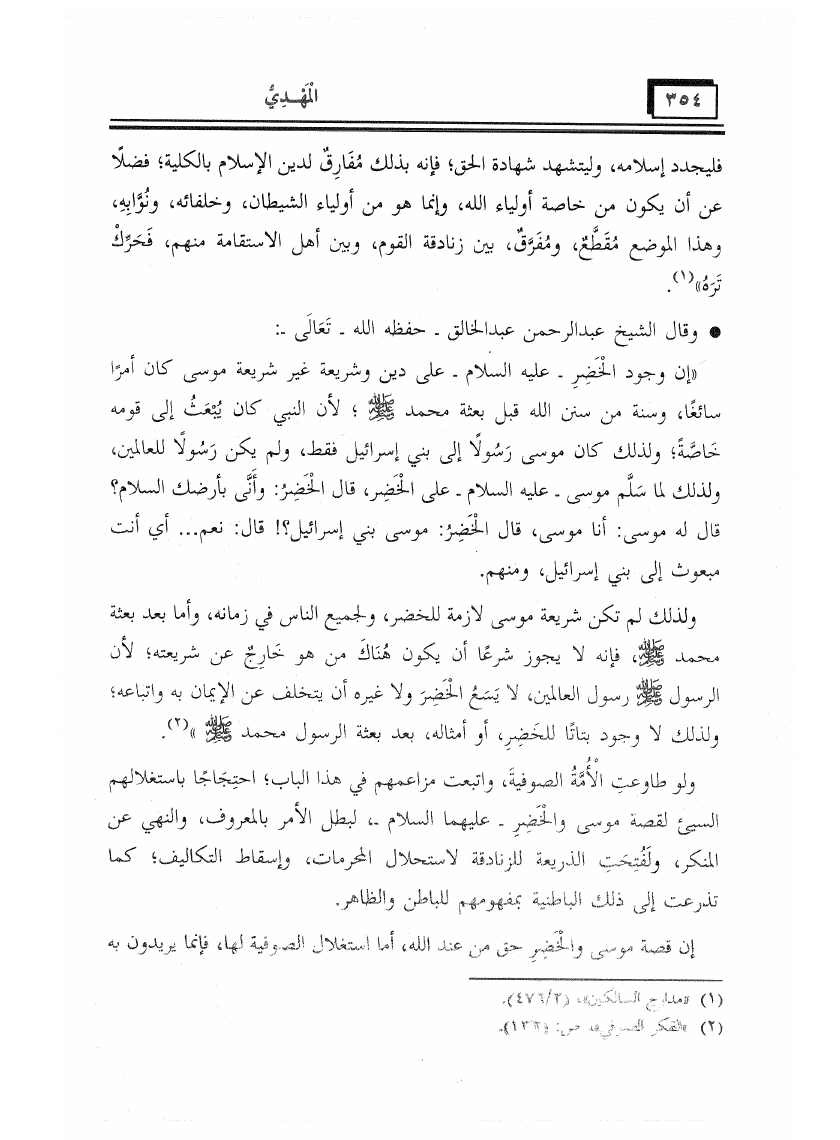 ٣٥٤
الْمَهْـدِيُّ
فليجدد إسلامه، وليتشهد شهادة الحق؛ فإنه بذلك مُفَارِقٌ لدين الإسلام بالكلية؛ فضلًا
عن أن يكون من خاصة أولياء الله، وإنما هو من أولياء الشيطان، وخلفائه، ونُوَّابِهِ،
وهذا الموضع مُقَطَّعٌ، ومُفَرَّقٌ، بين زنادقة القوم، وبين أهل الاستقامة منهم، فَحَرِّكْ
تَرَهُ»(١).
● وقال الشيخ عبدالرحمن عبدالخالق ـ حفظه الله ـ تَعَالَى ـ:
«إن وجود الْخَضِرِ ـ عليه السلام ـ على دين وشريعة غير شريعة موسى كان أمرًا
سائغًا، وسنة من سنن الله قبل بعثة محمد ﷺ ؛ لأن النبي كان يُبْعَثُ إلى قومه
خَاصَّةً؛ ولذلك كان موسى رَسُولًا إلى بني إسرائيل فقط، ولم يكن رَسُولًا للعالمين،
ولذلك لما سَلَّم موسى ـ عليه السلام ـ على الْخَضِر، قال الْخَضِرُ: وأَنَّى بأرضك السلام؟
قال له موسى: أنا موسى، قال الْخَضِرُ: موسى بني إسرائيل؟! قال: نعم... أي أنت
مبعوث إلى بني إسرائيل، ومنهم.
ولذلك لم تكن شريعة موسى لازمة للخضر، ولجميع الناس في زمانه، وأما بعد بعثة
محمد ﷺ، فإنه لا يجوز شرعًا أن يكون هُنَاكَ من هو خَارِجٌ عن شريعته؛ لأن
الرسول ﷺ رسول العالمين، لا يَسَعُ الْخَضِرَ ولا غيره أن يتخلف عن الإيمان به واتباعه؛
ولذلك لا وجود بتاتًا للخَضِرِ، أو أمثاله، بعد بعثة الرسول محمد ﷺ »(٢).
ولو طاوعتِ الْأُمَّةُ الصوفيةَ، واتبعت مزاعمهم في هذا الباب؛ احتِجَاجًا باستغلالهم
السيئ لقصة موسى والْخَضِرِ ـ عليهما السلام ـ، لبطل الأمر بالمعروف، والنهي عن
المنكر، ولَفُتِحَتِ الذريعة للزنادقة لاستحلال المحرمات، وإسقاط التكاليف؛ كما
تذرعت إلى ذلك الباطنية بمفهومهم للباطن والظاهر.
إن قصة موسى والْخَضِرِ حق من عند الله، أما استغلال الصوفية لها، فإنما يريدون به
(١) «مدارج السالكين»، (٤٧٦/٣).
(٢) «الفكر الصوفي»، ص: (١٣٣).